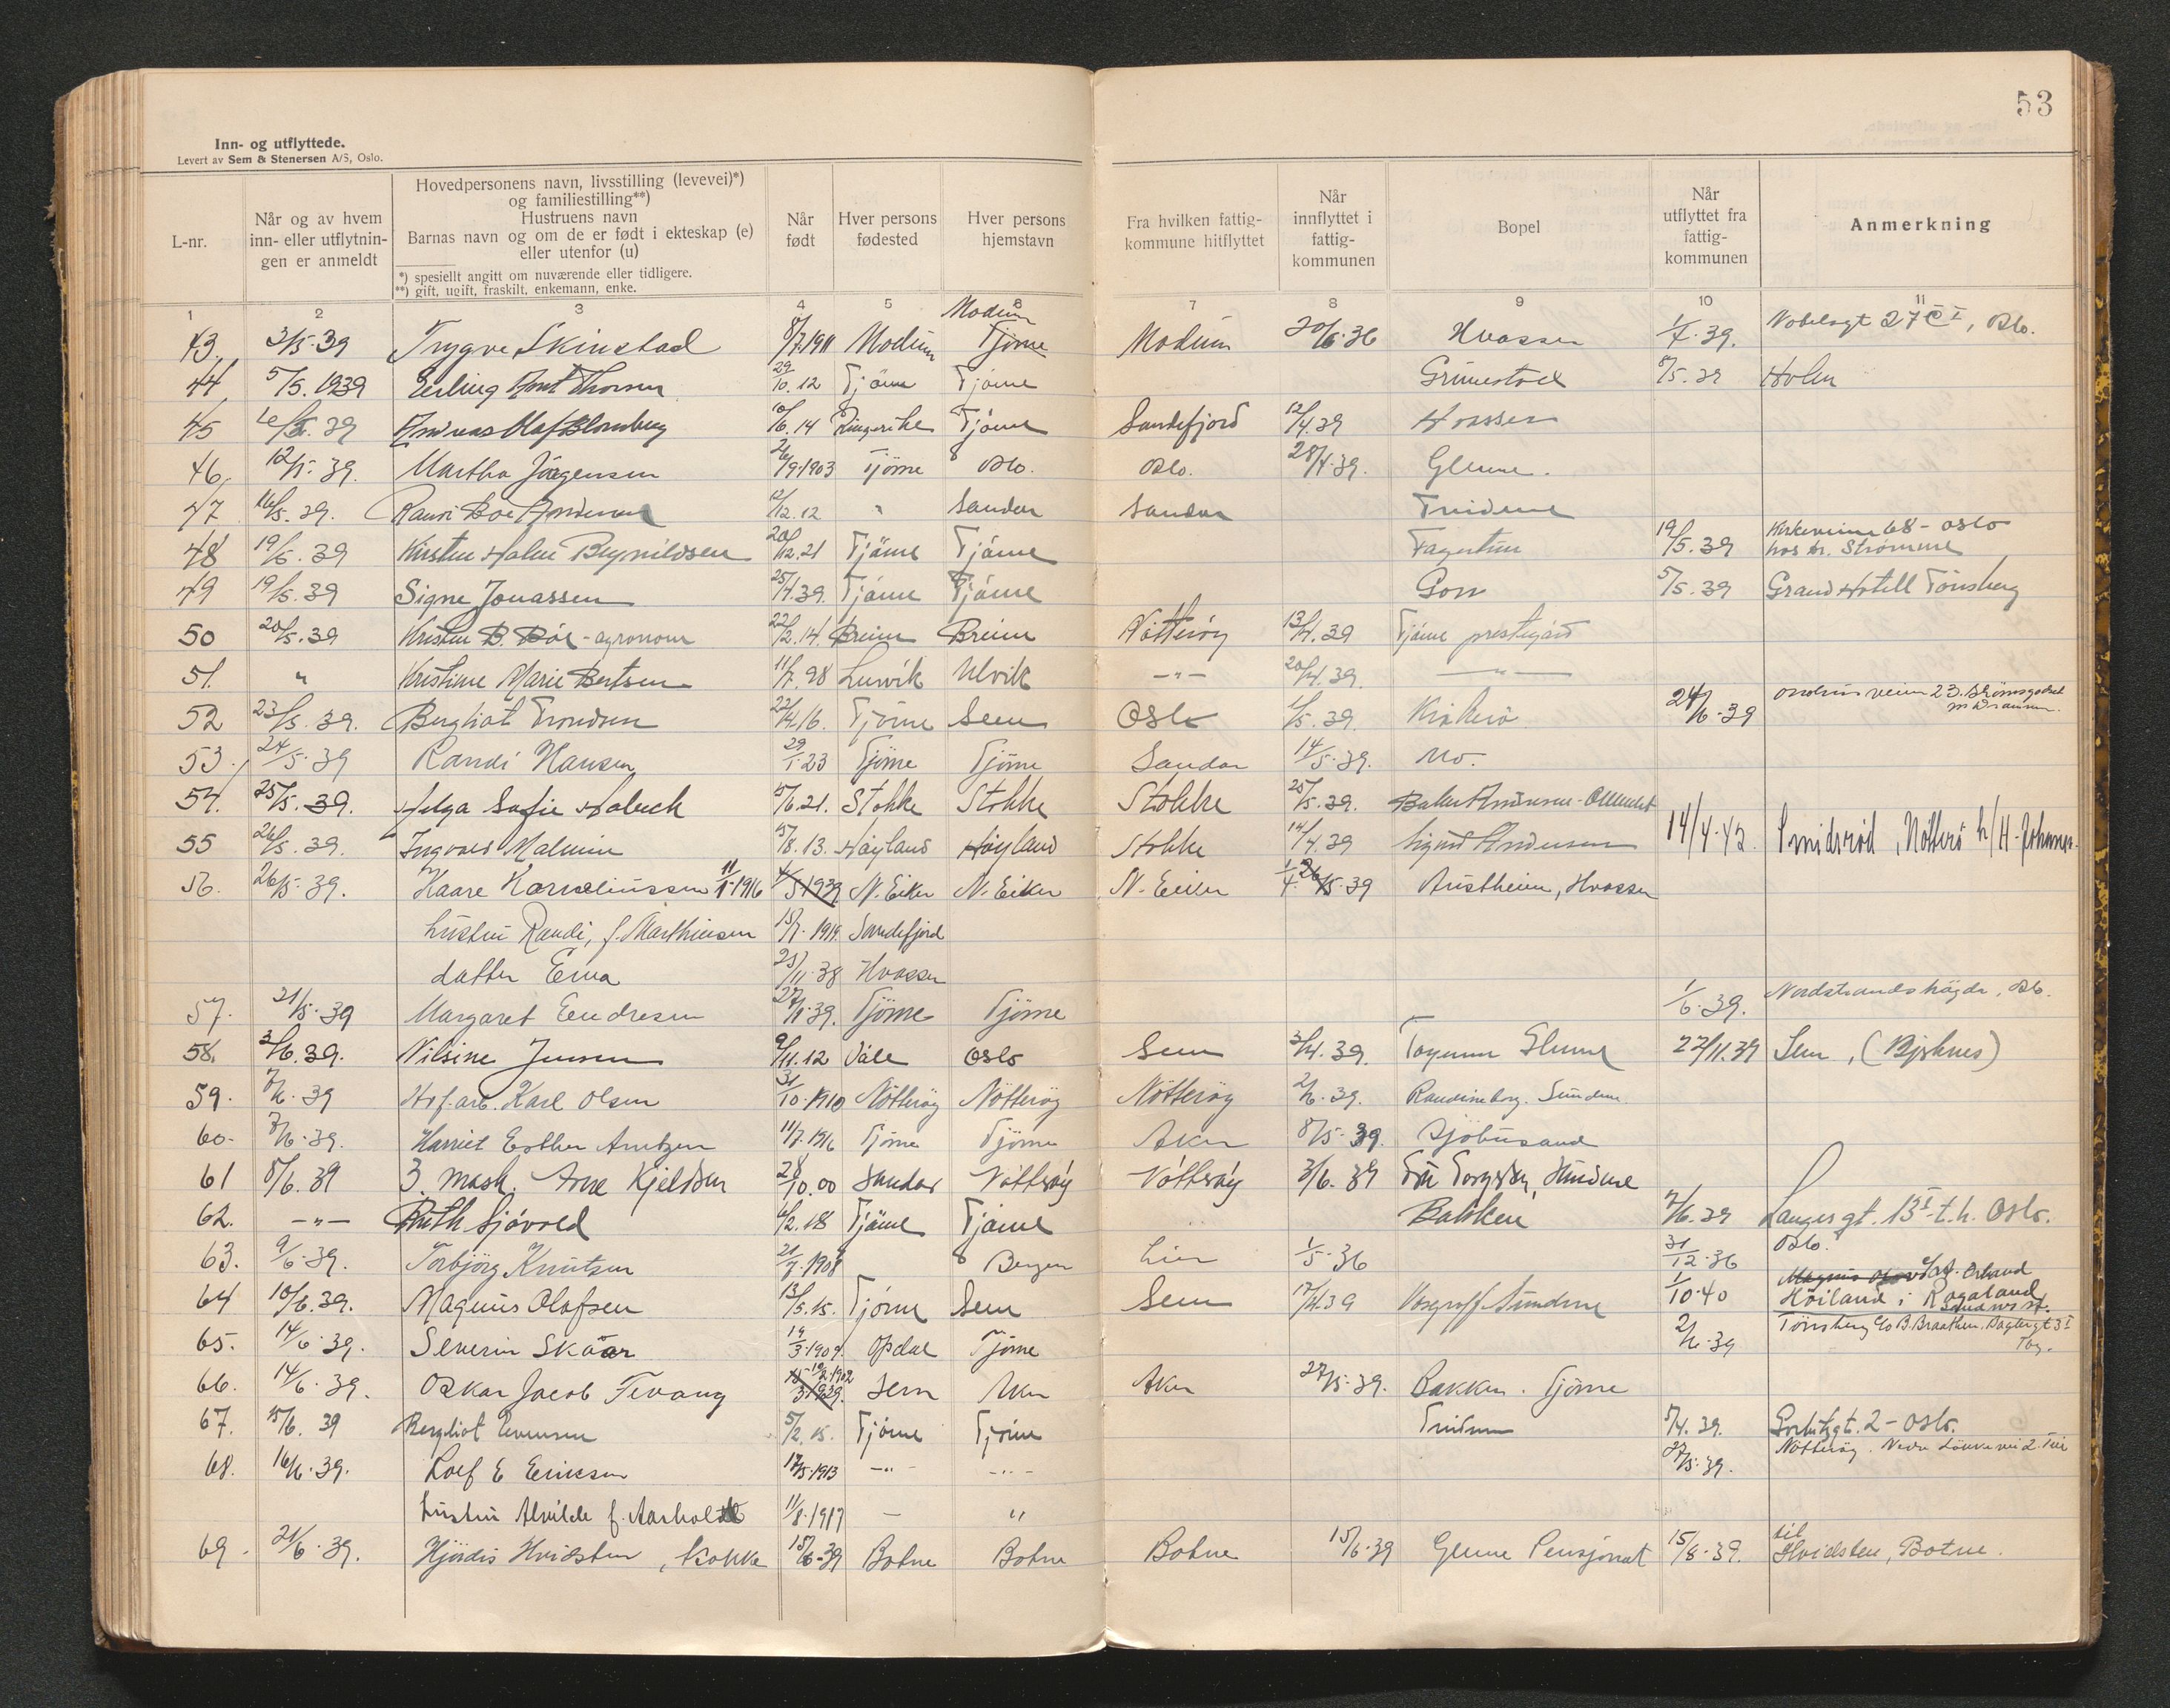 53
Inn- og utflyttede.
Levert av Sem & Stenersen A/S, Oslo.
L-nr.
Når og av hvem inn- eller utflytningen er anmeldt
Hovedpersonens navn, livsstilling (levevei)*)
og familiestilling**)
Hustruens navn
Barnas navn og om de er født i ekteskap (e)
eller utenfor (u)
*) spesiellt angitt om nuværende eller tidligere.
**) gift, ugift, fraskilt, enkemann, enke.
Når født
Hver persons fødested
Hver persons hjemstavn
Fra hvilken fattigkommune hitflyttet
Når innflyttet i fattigkommunen
Bopel
Når utflyttet fra fattigkommunen
Anmerkning
1 2 3 4 5 6 7 8 9 10 11
43. 3/5-39 Trygve Skinstad 8/7-1911 Modum Modum Tjøme Modum 20/6-36 Hvasser 1/7-39. Nobelsgt 27 C I, Oslo.
44 5/5.1939 Erling Thorsen 29/10.12 Tjøme Tjøme Grimestad 8/5.39 Holm
45 39 Andreas Olaf Blomberg 10/6.14 Ringerike Tjøme Sandefjord 12/4.39 Hvasser
46. 12/5.39. Martha Jørgensen 26/9-1903 Tjøme Oslo. Oslo. 28/4.39. Glenne.
47 16/5.39. Randi Boe Andersen 12/12.12 " Sandar Sandar
48 19/5.39 Kirsten Brynildsen 20/12.21 Tjøme Tjøme Fagertun 19/5.39 Kirkeveien 68 - Oslo
hos Strømme
49 19/5.39 Signe Jonassen 25/4.39. Tjøme Tjøme Gon 5/5.39 Grand Hotell Tønsberg
50 20/5.39 Kristen B. Bøe - agronom 22/2.14. Breim Breim Nøtterøy 13/4.39 Tjøme prestegård
51. " Kristine Marie Bertsen 11/7.98 Ulvik -"- 20/4.39. -"-
52 23/5.39. Bergliot Trondsen 22/4.16. Tjøme Sem Oslo 1/5.39. 24/6-39 veien 23.
53. 24/5.39 Randi Hansen 29/1.23 Tjøme Tjøme Sandar 14/5.39. Mo.
54. 25/5.39. Helga Sofie 5/6.21. Stokke Stokke Stokke 25/5.39.
55 26/5.39. Ingvald Malmin 15/8.13. Høyland Høyland Stokke 14/4.39 Sigurd Andersen 14/4-43 Smidsrød, Nøtterø h/H. Johansen
56. 26/5-39. Kaare Korneliussen 11/1-1916 N. Eiker N. Eiker N. Eiker 1/4. 39 Austheim, Hvasser
hustru Randi, f. Marthinsen 15/7-1919. Sandefjord
datter Erna 25/11-38 Hvasser
57. 31/5-39 Margaret Endresen 39. Tjøme Tjøme 1/6-39. Nordstrandshøgda, Oslo.
58. 2/6.39. Nilsine Jensen 9/11.12 Våle Oslo Sem 3/4.39. 22/11.39 Sem, (Bjeknes)
59. 7/6.39 Karl Olsen 31/10-1910 Nøtterøy Nøtterøy Nøtterøy 2/6.39.
60. 7/6-39. Harriet Esther Arntzen 11/7-1916 Tjøme Tjøme Aker 8/5-39. Sjøbusand
61 8/6.39 3. mask. Arne Kjeldsen 28/10.00 Sandar Nøtterøy Nøtterøy 3/6.39
62. -"- Ruth Sjøvold 6/2.18 Tjøme Tjøme Bakken 7/6.39 Langesgt. 13 I t.h. Oslo.
63. 9/6-39. Torbjørg Knutsen 21/7-1908 Bergen Lier 1/5-36 31/12-36 Oslo.
64 10/6.39. Magnus Olafsen 13/5.15. Tjøme Sem Sem 17/4.39 1/10-40 Høiland i Rogaland
65. 14/6-39. Severin Skaar 19/3-1909. Opdal Tjøme 2/6-39 Tønsberg c/o B. Braathen.
66. 14/6-39. Oskar Jacob Tevang 1902 Sem Aker Aker 27/5-39. Bakken. Tjøme
67. 15/6.39 Bergliot Evensen 5/2.15. Tjøme Tjøme 5/4.39. 2 - Oslo.
68. 16/6-39. Rolf E Eriksen 17/5-1913 -"- -"- 27/5-39. Nøtterøy.
hustru Alvilde f. Aarholt 11/8-1917 - "
69. 21/6-39. Hjørdis Hvidsten, kokke 15/6-39 Botne Botne Botne 15/6-39 Glenne Pensjonat 15/8-39. til
Hvidsten, Botne.